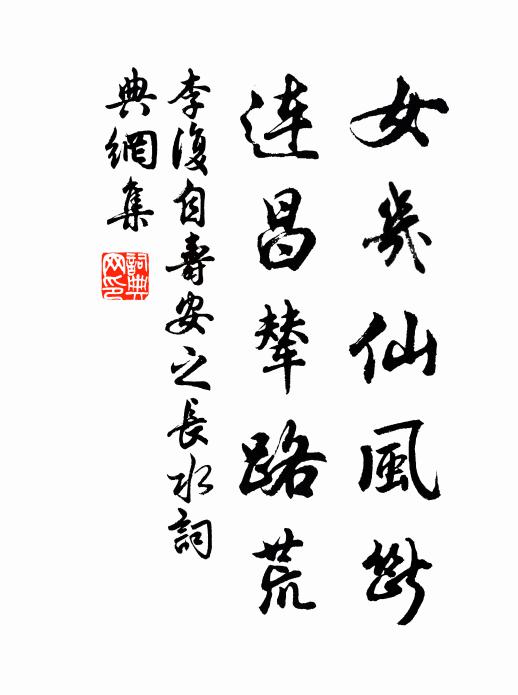 女幾仙風斷
連昌輦路荒
李復自壽安之長水詞
典網集
詞典網印